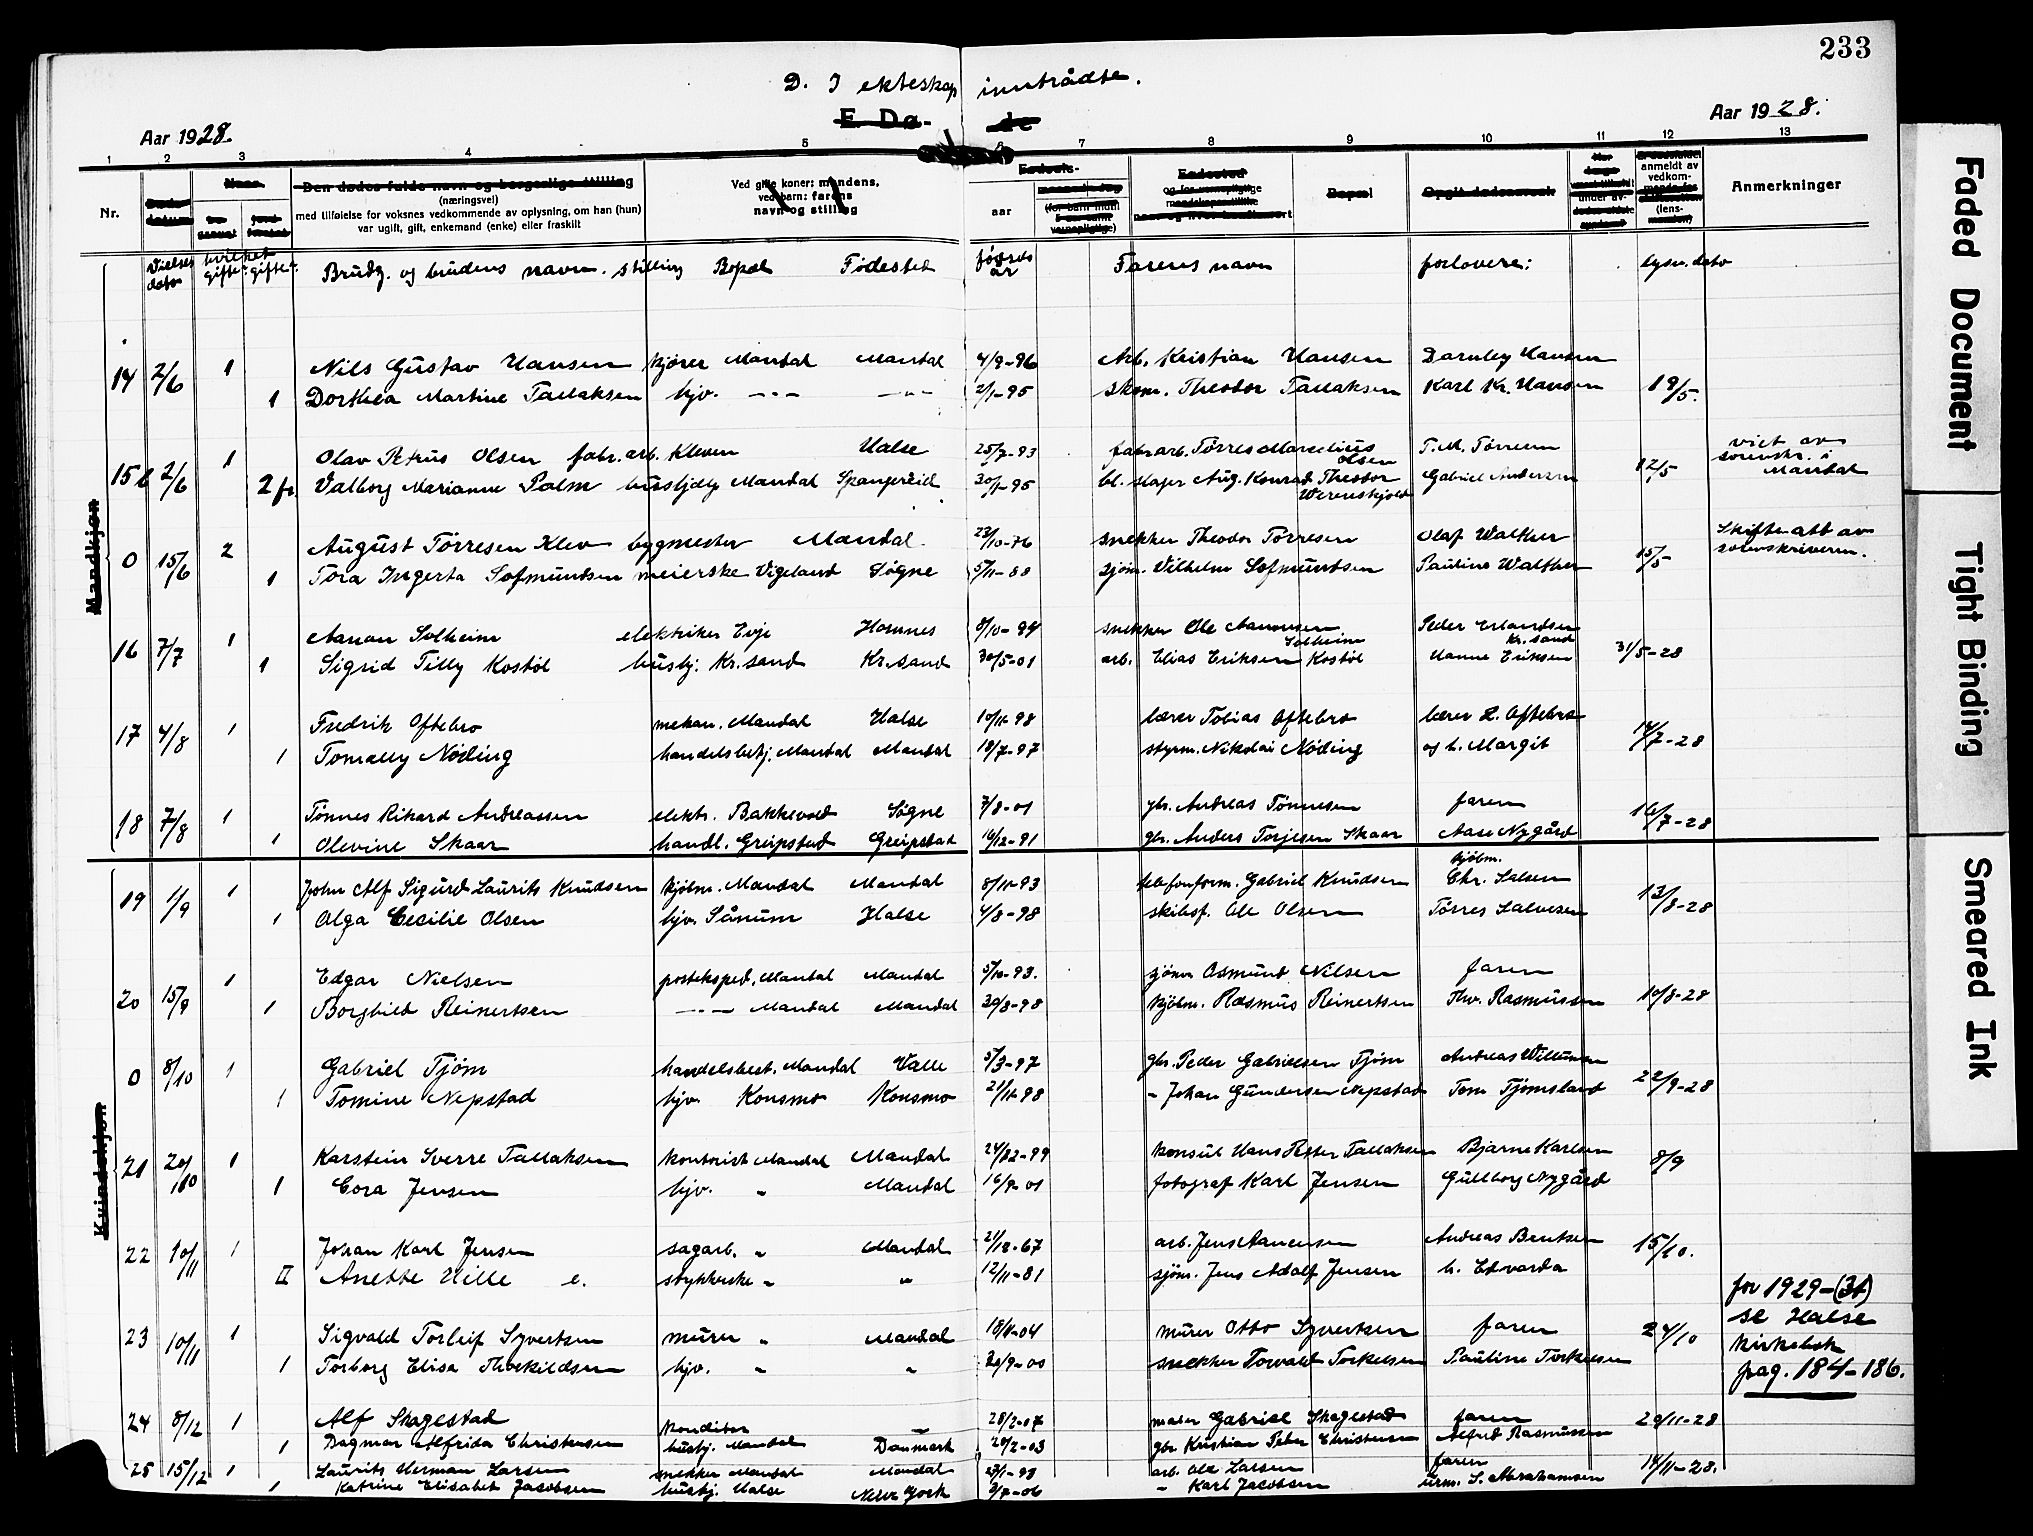 233
D. I ekteskap inntrådte.
E. Døde
Aar 1928.
Aar 1928.
1 2 3 4 5 6 7 8 9 10 11 12 13
Nr.
Den dødes fulde navn og borgerlige stilling
(næringsvei)
med tilføielse for voksnes vedkommende av oplysning, om han (hun)
var ugift, gift, enkemand (enke) eller fraskilt
Ved gifte koner: mandens,
ved barn: farens
navn og stilling
aar
Bopæl
Anmerkninger
Vielses dato hvilket gifte: gifte: Brudg. og brudens navn. stilling Bopæl Fødested fødsels år Farens navn forlovere: lysn. dato
14 2/6 1 Nils Gustav Hansen kjører Mandal Mandal 4/9-96 Arb. Kristian Hansen Darnley Hansen
1 Dorthea Martine Tallaksen hjv. -"- -"- 2/1-95 skom. Theodor Tallaksen Karl Kr. Hansen 19/5.
15 b 2/6 1 Olav Petrus Olsen fabr. arb. Kleven Halse 25/7-93 fabr. arb. Tørres Marselius Olsen T. M. Tørresen
2 fr. Valborg Marianne Palm hushjelp Mandal Spangereid 30/1-95 bl. slager Aug. Konrad Theodor Werenskjold Gabriel Andersen 12/5
viet av sorenskr. i Mandal
0 15/6 2 August Tørresen Klev bygmester Mandal 23/10-76 snekker Theodor Tørresen Olaf Walther
1 Tora Ingerta Sofmundsen meierske Vigeland Søgne 5/11-88 sjøm. Vilhelm Sofmundsen Pauline Walther 15/5
Skifte-att av sorenskriveren.
16 7/7 1 Aanon Solheim elektriker Evje Hornnes 8/10-94 snekker Ole Aanonsen Solheim Peder Erlandsen Kr. sand
1 Sigrid Tilly Kostøl husbj. Kr. sand Kr. sand 30/5-01 arb. Elias Eriksen Kostøl Hanne Eriksen 31/5-28
17 4/8 1 Fredrik Oftebro mekan. Mandal Halse 10/11-98 lærer Tobias Oftebro lærer L. Oftebro
1 Tomelly Nøding handelsbetj. Mandal Mandal 18/7-97 styrm. Nikolai Nøding og h. Margit 14/7-28
18 7/8 1 Tønnes Rikard Andreassen elektr. Bakkevold Søgne 7/8-01 gbr. Andreas Tønnesen faren
1 Olevine Skaar handl. Greipstad Greipstad 14/12-91 gbr. Anders Torjesen Skaar Aase Nygård 16/7-28
19 1/9 1 John Alf Sigurd Laurits Knudsen kjøbm. Mandal Mandal 8/11-93 telefonform. Gabriel Knudsen kjøbm. Chr. Salsen
1 Olga Cecilie Olsen hjv. Sånum Halse 4/8-98 skibsf. Ole Olsen Tørres Salvesen 13/8-28
20 15/9 1 Edgar Nielsen posteksped. Mandal Mandal 5/10-93. sjøm. Osmund Nilsen faren
1 Borghild Reinertsen -"- Mandal Mandal 30/8-98 kjøbm. Rasmus Reinertsen Thv. Rasmussen 10/8-28
0 8/10 1 Gabriel Tjøm handelsbest. Mandal Valle 5/3-97 gbr. Peder Gabrielsen Tjøm Andreas Willumsen
1 Tomine Nepstad hjv. Konsmo Konsmo 21/11-98 - Johan Gundersen Nepstad Tom Tjomsland 22/9-28
21 20/10 1 Karstein Sverre Tallaksen kontorist Mandal Mandal 24/12-99 konsul Hans Peter Tallaksen Bjarne Karlsen
1 Cora Jensen hjv. " Mandal 16/9-01 fotograf Karl Jensen Gullborg Nygård 8/9
22 10/11 1 Johan Karl Jensen sagarb. " Mandal 2/12-67 arb. Jens Aanensen Andreas Bentsen
II Anette Hille e. strykerske " " 12/11-81 sjøm. Jens Adolf Jensen h. Edvarda 15/10.
23 10/11 1 Sigvald Torleif Syvertsen murer " Mandal 18/11-04 murer Otto Syvertsen faren
1 Torborg Elisa Thorkildsen hjv. " " 30/9-00 snekker Torvald Torkelsen Pauline Torkelsen 24/10
for 1929-(31)
se Halse
kirkebok
pag. 184-186.
24 8/12 1 Alf Skagestad konditor " 28/2-07 maler Gabriel Skagestad faren
1 Dagmar Alfrida Christensen husbj. Mandal Danmark 20/2-03 gbr Kristian Peter Christensen Alfred Rasmussen 20/11-28
25 15/12 1 Laurits Herman Larsen snekker Mandal Mandal 27/1-98 arb. Ole Larsen faren
1 Katrine Elisabet Jacobsen husbj. Halse New York 3/7-06 - Karl Jacobsen urm. S. Abrahamsen 14/11-28.
Mandkjøn
Kvindekjøn
Faded Document
Tight Binding
Smeared Ink